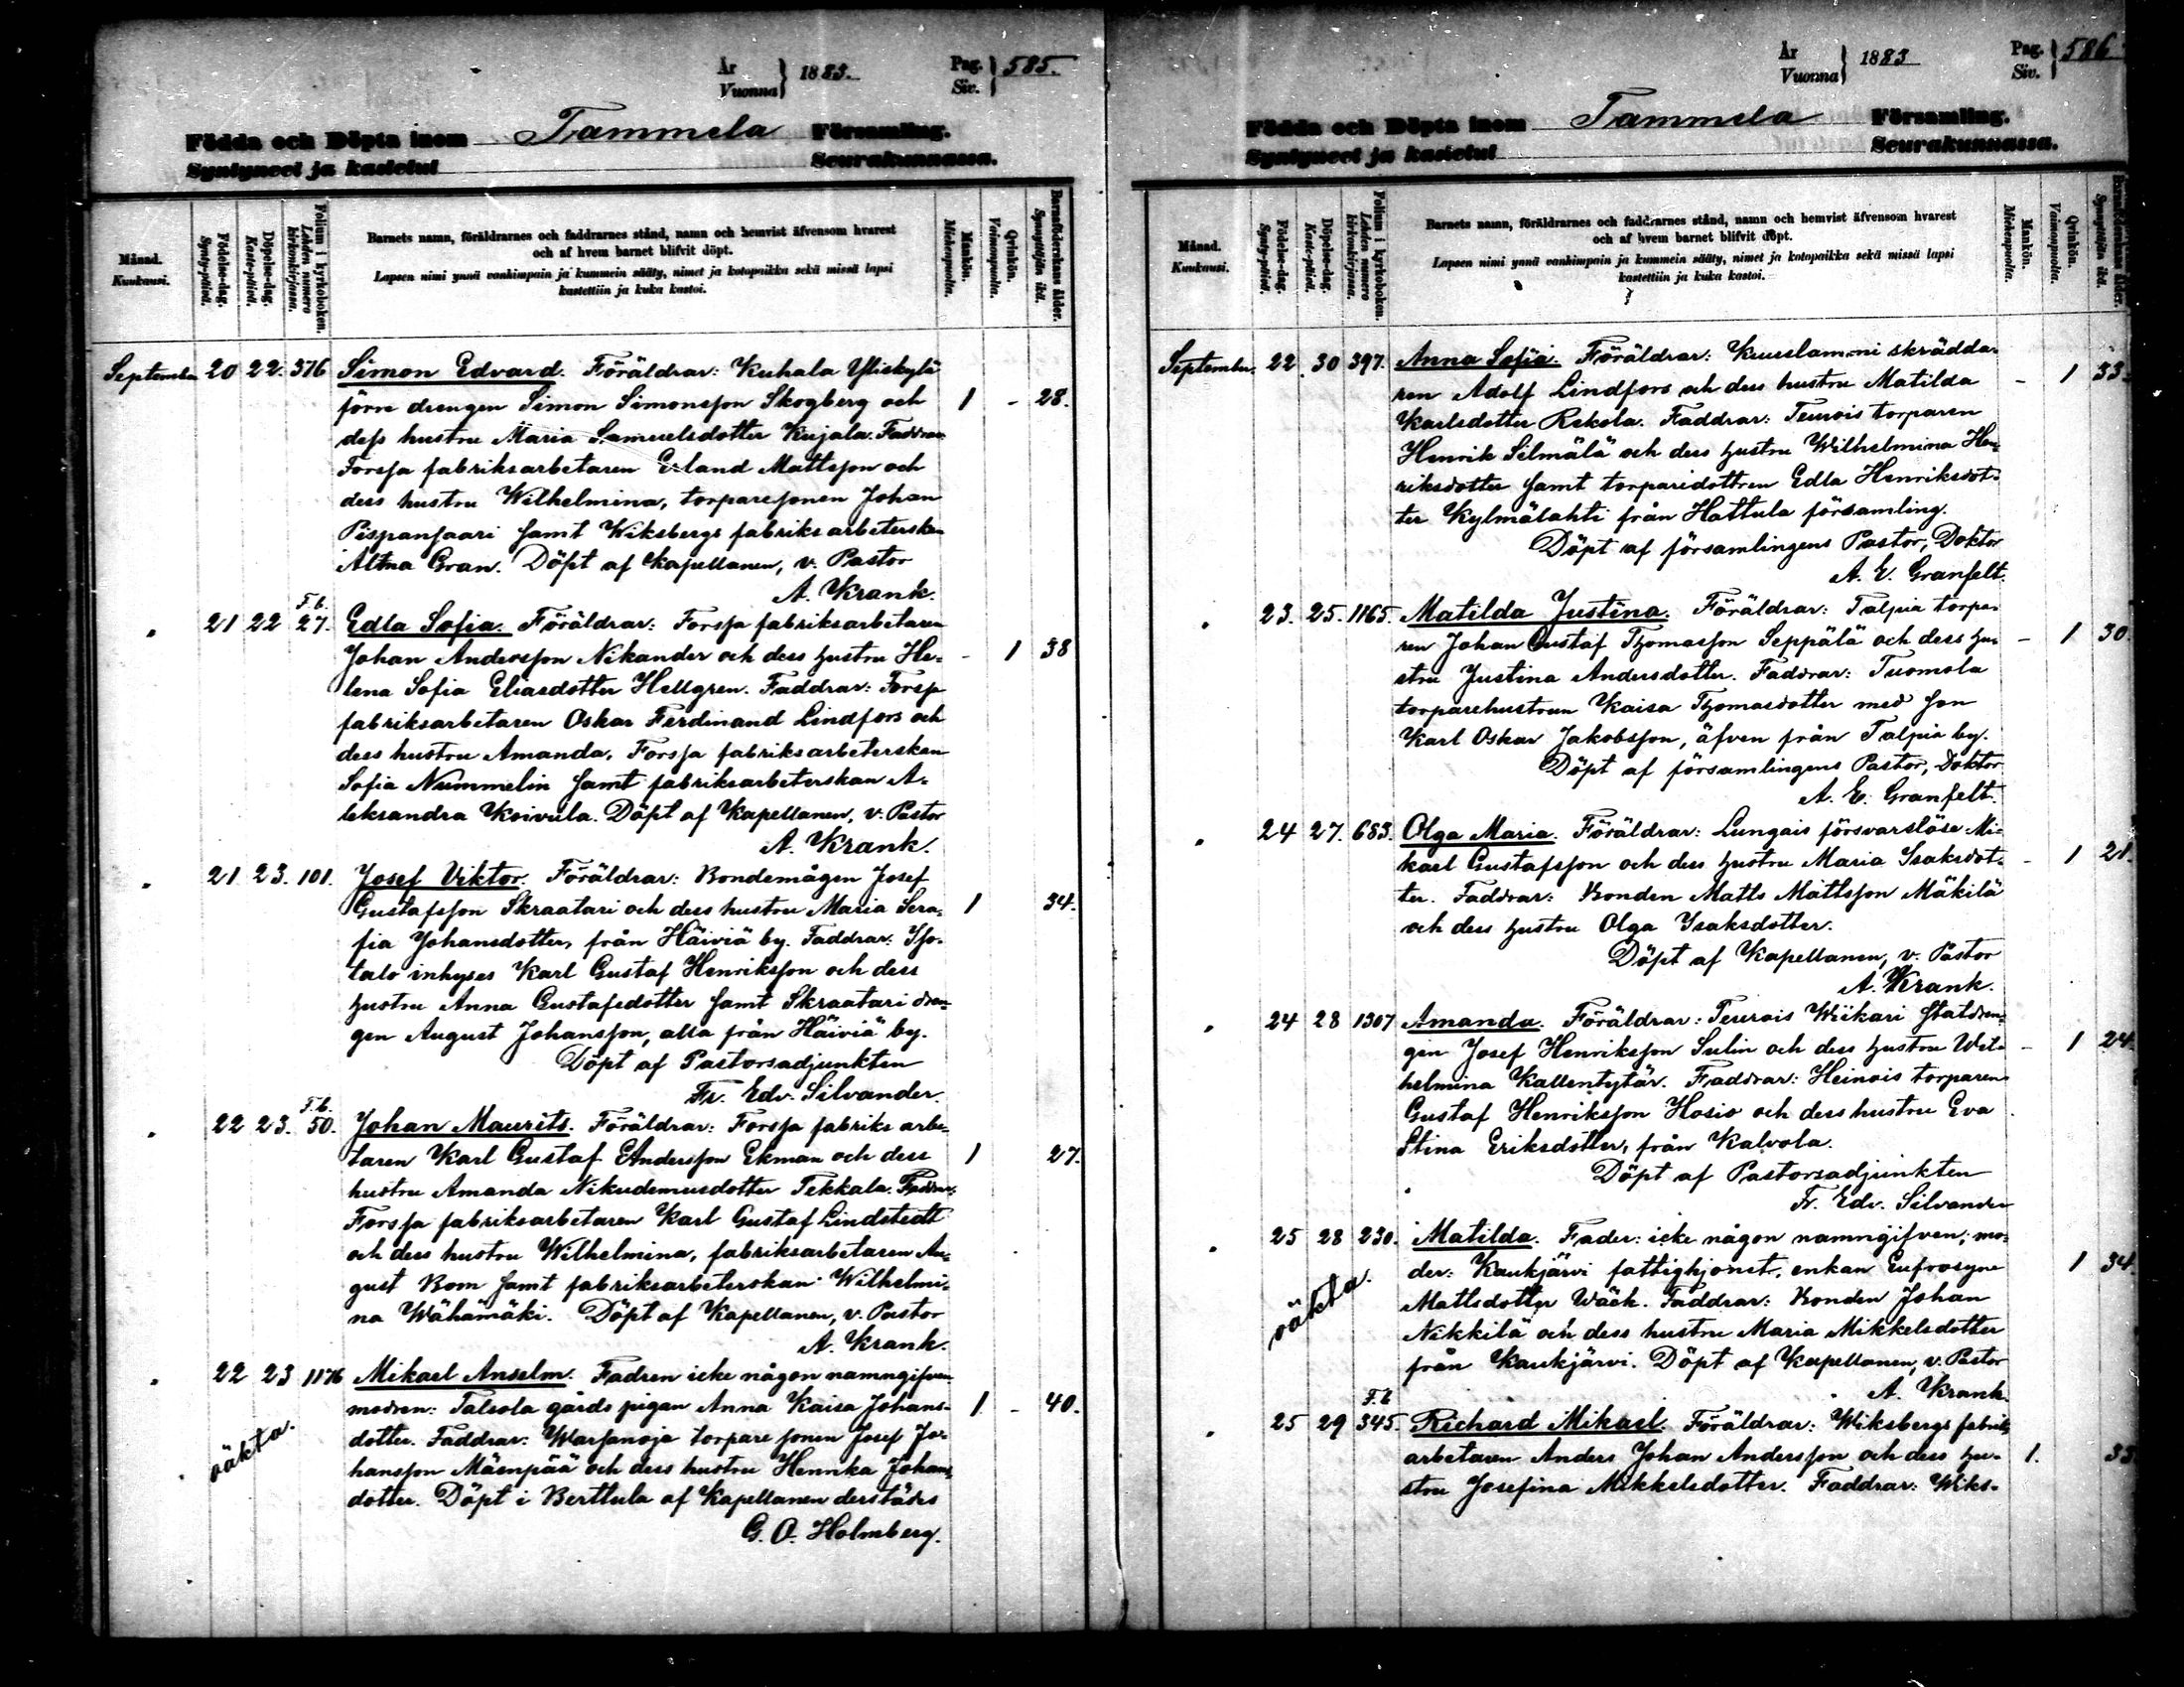 År
Vuonna } 1883.
Pag.
Siv. } 585.
Födda och Döpta inom Tammela Församling.
Syntyneet ja kastetut Seurakunnassa.
Månad.
Kuukausi.
Födelse-dag.
Synty-päivä.
Döpelse-dag.
Kaste-päivä.
Folium i kyrkoboken.
Lehden numero kirkonkirjassa.
Barnets namn, föräldrarnes och faddrarnes stånd, namn och hemvist äfvensom hvarest
och af hvem barnet blifvit döpt.
Lapsen nimi ynnä vanhimpain ja kummein sääty, nimet ja kotopaikka sekä missä lapsi
kastettiin ja kuka kastoi.
Mankön.
Miehenpuolta.
Qvinkön.
Vaimonpuolta.
Barnaföderskans ålder.
Synnyttäjän ikä.
September 20 22. 376 Simon Edvard. Föräldrar: Kuhala Yliskylä
förre drengen Simon Simonsson Skogberg och 1 - 28.
dess hustru Maria Samuelsdotter Kujala. Faddrar
Forssa fabriksarbetaren Erland Mattsson och
dess hustru Wilhelmina, torparesonen Johan
Pispansaari samt Wiksbergs fabriksarbeterskan
Altna Gran. Döpt af Kapellanen, v. Pastor
A. Krank.
" 21 22 F.b. 27. Edla Sofia. Föräldrar: Forssa fabriksarbetaren
Johan Andersson Nikander och dess hustru He- - 1 38
lena Sofia Eliasdotter Hellgren. Faddrar: Forssa
fabriksarbetaren Oskar Ferdinand Lindfors och
dess hustru Amanda, Forssa fabriksarbeterskan
Sofia Nummelin samt fabriksarbeterskan A-
leksandra Koivula. Döpt af Kapellanen, v. Pastor
A. Krank.
" 21 23. 101. Josef Viktor. Föräldrar: Bondemågen Josef
Gustafsson Skraatari och dess hustru Maria Sera- 1 34.
fia Johansdotter, från Häiviä by. Faddrar: Iso-
talo inhyses Karl Gustaf Henriksson och dess
hustru Anna Gustafsdotter samt Skraatari dren-
gen August Johansson, alla från Häiviä by.
Döpt af Pastorsadjunkten
Fr. Edv. Silvander.
" 22 23. F.b. 50. Johan Maurits. Föräldrar: Forssa fabriks arbe-
taren Karl Gustaf Andersson Ekman och dess 1 27.
hustru Amanda Nikudemusdotter Tekkala. Faddrar:
Forssa fabriksarbetaren Karl Gustaf Lindstedt
och dess hustru Wilhelmina, fabriksarbetaren Au-
gust Bom samt fabriksarbeterskan Wilhelmi-
na Wähämäki. Döpt af Kapellanen, v. Pastor
A. Krank.
" 22 23 1176 Mikael Anselm. Fadren icke någon namngifven
modren: Talsola gårds pigan Anna Kaisa Johans- 1. - 40.
oäkta.
dotter. Faddrar: Warsanoja torpare sonen Josef Jo-
hansson Mäenpää och dess hustru Henrika Johans
dotter. Döpt i Berttula af Kapellanen derstädes
G. O. Holmberg.
År
Vuonna } 1883
Pag.
Siv. } 586
Födda och Döpta inom Tammela Församling.
Syntyneet ja kastetut Seurakunnassa.
Månad.
Kuukausi.
Födelse-dag.
Synty-päivä.
Döpelse-dag.
Kaste-päivä.
Folium i kyrkoboken.
Lehden numero kirkonkirjassa.
Barnets namn, föräldrarnes och faddrarnes stånd, namn och hemvist äfvensom hvarest
och af hvem barnet blifvit döpt.
Lapsen nimi ynnä vanhimpain ja kummein sääty, nimet ja kotopaikka sekä missä lapsi
kastettiin ja kuka kastoi.
Mankön.
Miehenpuolta.
Qvinkön.
Vaimonpuolta.
Barnaföderskans ålder.
Synnyttäjän ikä.
September. 22 30 397. Anna Sofia. Föräldrar: Kuuslammi skrädda-
ren Adolf Lindfors och dess hustru Matilda - 1 33.
Karlsdotter Rekola. Faddrar: Teurois torparen
Henrik Silmälä och dess hustru Wilhelmina Hen-
riksdotter samt torparedottren Edla Henriksdot-
ter Kylmälahti från Hattula församling.
Döpt af församlingens Pastor, Doktor
A. E. Granfelt.
" 23. 25. 1165. Matilda Justina. Föräldrar: Talpia torpa-
ren Johan Gustaf Thomasson Seppälä och dess hu- - 1 30.
stru Justina Andersdotter. Faddrar: Tuomola
torparehustrun Kaisa Thomasdotter med son
Karl Oskar Jakobsson, äfven från Talpia by.
Döpt af församlingens Pastor, Doktor
A. E. Granfelt.
" 24 27. 683. Olga Maria. Föräldrar: Lungais försvarslöse Mi-
kael Gustafsson och dess hustru Maria Isaksdot- - 1 21.
ter. Faddrar: Bonden Matts Mattsson Mäkilä
och dess hustru Olga Isaksdotter.
Döpt af Kapellanen, v. Pastor
A. Krank.
" 24 28 1307 Amanda. Föräldrar: Teurois Wiikari statdren-
gen Josef Henriksson Sulin och dess hustru Wil- - 1 24.
helmina Kallentytär. Faddrar: Heinois torparen
Gustaf Henriksson Hosio och dess hustru Eva
Stina Eriksdotter, från Kalvola.
Döpt af Pastorsadjunkten
Fr. Edv. Silvander
" 25 28 230. Matilda. Fader: icke någon namngifven; mo-
der: Kaukjärvi fattighjonet, enkan Eufrosyne 1 34.
oäkta.
Mattsdotter Wäck. Faddrar: Bonden Johan
Nikkilä och dess hustru Maria Mikkelsdotter
från Kaukjärvi. Döpt af Kapellanen, v. Pastor
A. Krank.
" 25 29 F.b 345. Richard Mikael. Föräldrar: Wiksbergs fabriks
arbetaren Anders Johan Andersson och dess hu- 1. 33
stru Josefina Mikkelsdotter. Faddrar: Wiks-